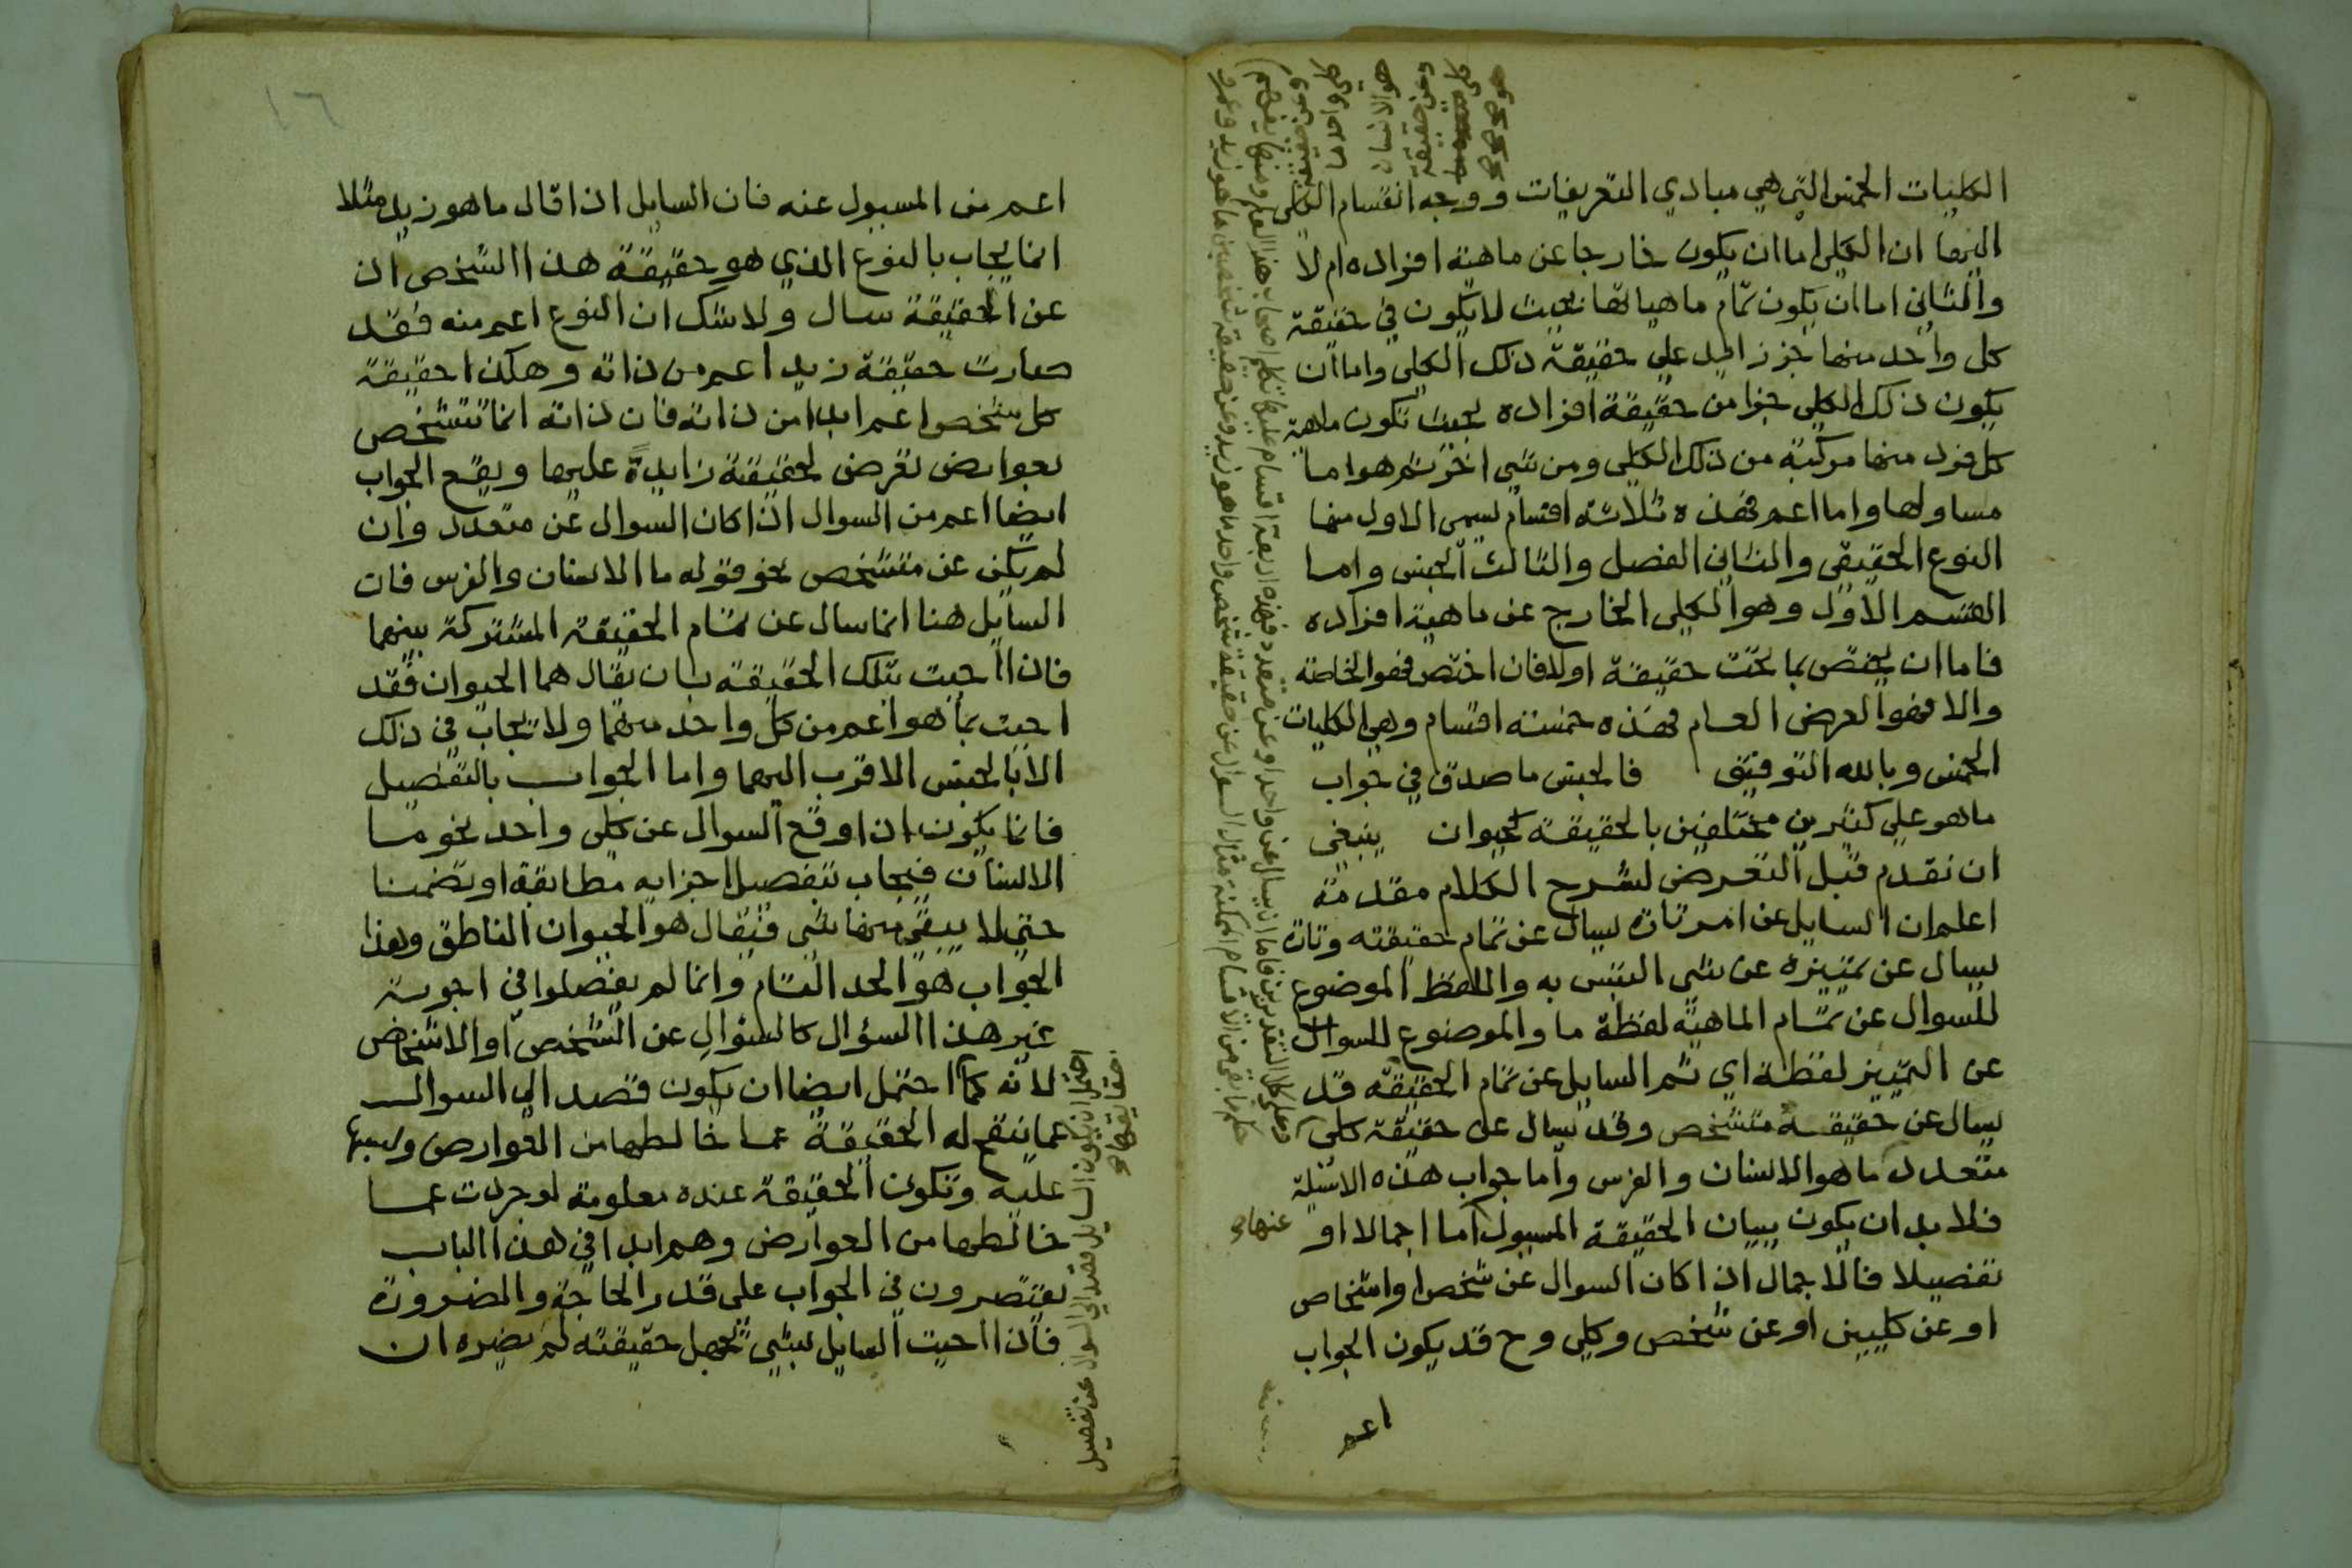 الكليات الخمس التي هي مبادي التعريفات ووجه انقسام الكلي
اليها ان الكلي اما ان يكون خارجا عن ماهية افراده ام لا
والثاني اما ان يكون تمام ماهياتها بحيث لا يكون في حقيقة
كل واحد منها جز زايد علي حقيقة ذلك الكلي واما ان
يكون ذلك الكلي جزا من حقيقة افراده بحيث تكون ماهية
كل فرد منها مركبة من ذلك الكلي ومن شي اخر ثم هو اما
مساو لها واما اعم فهذه ثلاثة اقسام يسمى الاول منها
النوع الحقيقي والثاني الفصل والثالث الجنس واما
القسم الاول وهو الكلي الخارج عن ماهية افراده
فاما ان يختص بما تحت حقيقة اولا فان اختص فهو الخاصة
والا فهو العرض العام فهذه خمسة اقسام وهي الكليات
الخمس وبالله التوفيق فالجنس ما صدق في جواب
ما هو علي كثيرين مختلفين بالحقيقة كحيوان ينبغي
ان نقدم قبل التعرض لشرح الكلام مقدمة
اعلم ان السايل عن امر تارة يسال عن تمام حقيقته وتارة
يسال عن تمييزه عن شي التبس به واللفظ الموضوع
للسوال عن تمام الماهية لفظة ما والموضوع للسوال
عن التمييز لفظة اي ثم السايل عن تمام الحقيقة قد
يسال عن حقيقة متشخص وقد يسال عن حقيقة كلي
متعدد ما هو الانسان والفرس واما جواب هذه الاسئلة
فلا بد ان يكون ببيان الحقيقة المسيول اما اجمالا او
عنها صح
تفصيلا فالاجمال اذا كان السوال عن شخص او اشخاص
او عن كليين او عن شخص وكلي وح قد يكون الجواب
اعم
كل واحد ما
هو الانسان
وعن حقيقة
صح صح صح
١٦
اعم من المسيول عنه فان السايل اذا قال ما هو زيد مثلا
انما يجاب بالنوع الذي هو حقيقة هذا الشخص اذ
عن الحقيقة سال ولا شك ان النوع اعم منه فقد
صارت حقيقة زيد اعم من ذاته وهكذا حقيقة
كل شخص اعم ابدا من ذاته فان ذاته انما تتشخص
بعوارض تعرض لحقيقة زايدة عليها ويقع الجواب
ايضا اعم من السوال اذا كان السوال عن متعدد وان
لم يكن عن متشخص نحو قوله ما الانسان والفرس فان
السايل هنا انما سال عن تمام الحقيقة المشتركة بينهما
فاذا اجيب بتلك الحقيقة بان يقال هما الحيوان فقد
اجيب بما هو اعم من كل واحد منهما ولا يجاب في ذلك
الا بالجنس الاقرب اليهما واما الجواب بالتفصيل
فانما يكون اذا وقع السوال عن كلي واحد نحو ما
الانسان فيجاب بتفصيل اجزايه مطابقة او تضمنا
حتي لا يبقي منها شي فيقال هو الحيوان الناطق وهذا
الجواب هو الحد التام وانما لم يفصلوا في اجوبة
غير هذا السؤال كالسؤال عن الشخص او الاشخاص
لانه كما احتمل ايضا ان يكون قصد الي السوال
عما يتقع له الحقيقة عما خالطها من العوارض
عليه وتكون الحقيقة عنده معلومة لو جردت عما
خالطها من العوارض وهم ابدا في هذا الباب
يقتصرون في الجواب علي قدر الحاجة والضرورة
فاذا اجيب السايل بشي تجهل حقيقته لم يضره ان
احتمل ان يكون السايل قصد الي السوال عن تفصيل
حقايقها صح